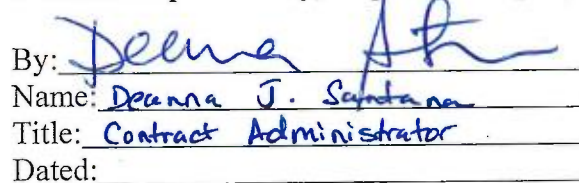 By: Deanna
Name: Deanna J. Santana
Title: Contract Administrator
Dated: